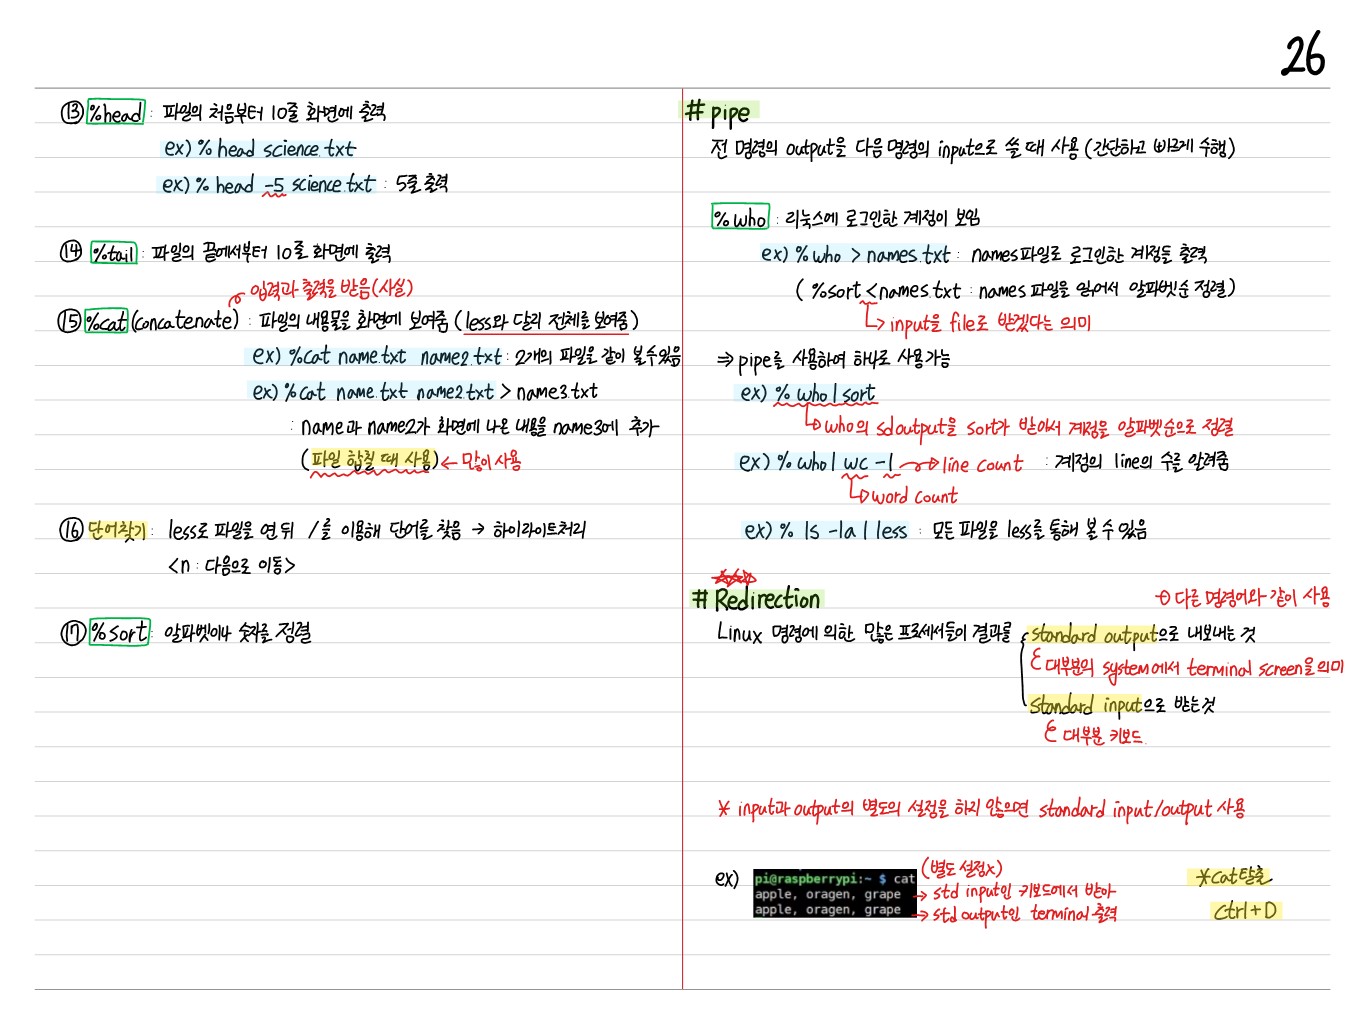 26
⑬ %head : 파일의 처음부터 10줄 화면에 출력
ex) % head science.txt
ex) % head -5 science.txt : 5줄 출력
⑭ %tail : 파일의 끝에서부터 10줄 화면에 출력
입력과 출력을 받음(사실)
⑮ %cat (concatenate) : 파일의 내용물을 화면에 보여줌 (less와 달리 전체를 보여줌)
ex) %cat name.txt name2.txt : 2개의 파일을 같이 볼 수 있음
ex) %cat name.txt name2.txt > name3.txt
: name과 name2가 화면에 나온 내용을 name3에 추가
(파일 합칠 때 사용) ← 많이 사용
⑯ 단어찾기 : less로 파일을 연 뒤 /를 이용해 단어를 찾음 → 하이라이트처리
<n : 다음으로 이동>
⑰ %sort : 알파벳이나 숫자를 정렬
# pipe
전 명령의 output을 다음 명령의 input으로 쓸 때 사용 (간단하고 빠르게 수행)
% who : 리눅스에 로그인한 계정이 보임
ex) % who > names.txt : names파일로 로그인한 계정들 출력
( %sort < names.txt : names 파일을 읽어서 알파벳순 정렬)
→ input을 file로 받겠다는 의미
⇒ pipe를 사용하여 하나로 사용가능
ex) % who | sort
→ who의 sdoutput을 sort가 받아서 계정을 알파벳순으로 정렬
ex) % who | wc -l → line count : 계정의 line의 수를 알려줌
→ word count
ex) % ls -la | less : 모든 파일을 less를 통해 볼 수 있음
# Redirection
→ 다른 명령어와 같이 사용
Linux 명령에 의한 많은 프로세서들이 결과를 standard output으로 내보내는 것
대부분의 system에서 terminal screen을 의미
standard input으로 받는것
대부분 키보드
* input과 output의 별도의 설정을 하지 않으면 standard input/output 사용
ex) pi@raspberrypi:~ $ cat (별도 설정x)
apple, oragen, grape → std input인 키보드에서 받아
apple, oragen, grape → std output인 terminal 출력
*cat 탈출
ctrl+D